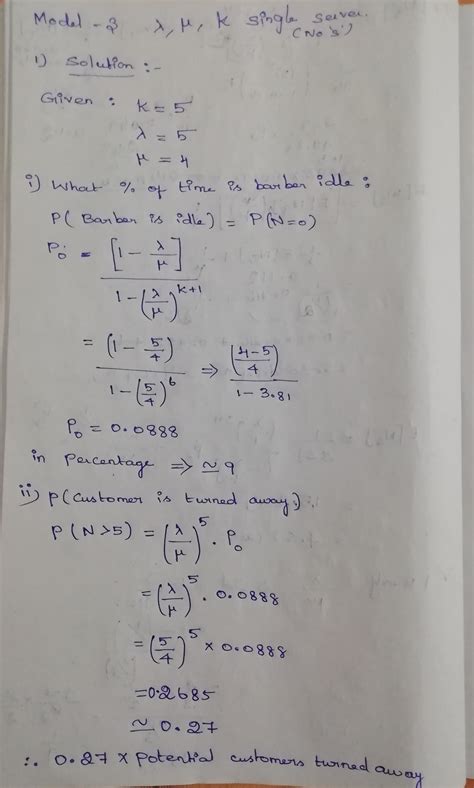 Model - 3 λ, μ, k single server.
(No's)
1) Solution :-
Given : k = 5
λ = 5
μ = 4
i) What % of time is barber idle :
P( Barber is idle) = P(N=0)
P₀ = [1 - λ/μ] / 1 - (λ/μ)^k+1
= (1 - 5/4) / 1 - (5/4)^6 ⇒ (4-5/4) / 1 - 3.81
P₀ = 0.0888
in Percentage ⇒ ≃ 9
ii) P(customer is turned away) :
P(N>5) = (λ/μ)^5 . P₀
= (λ/μ)^5 . 0.0888
= (5/4)^5 x 0.0888
= 0.2685
≃ 0.27
∴ 0.27 x potential customers turned away